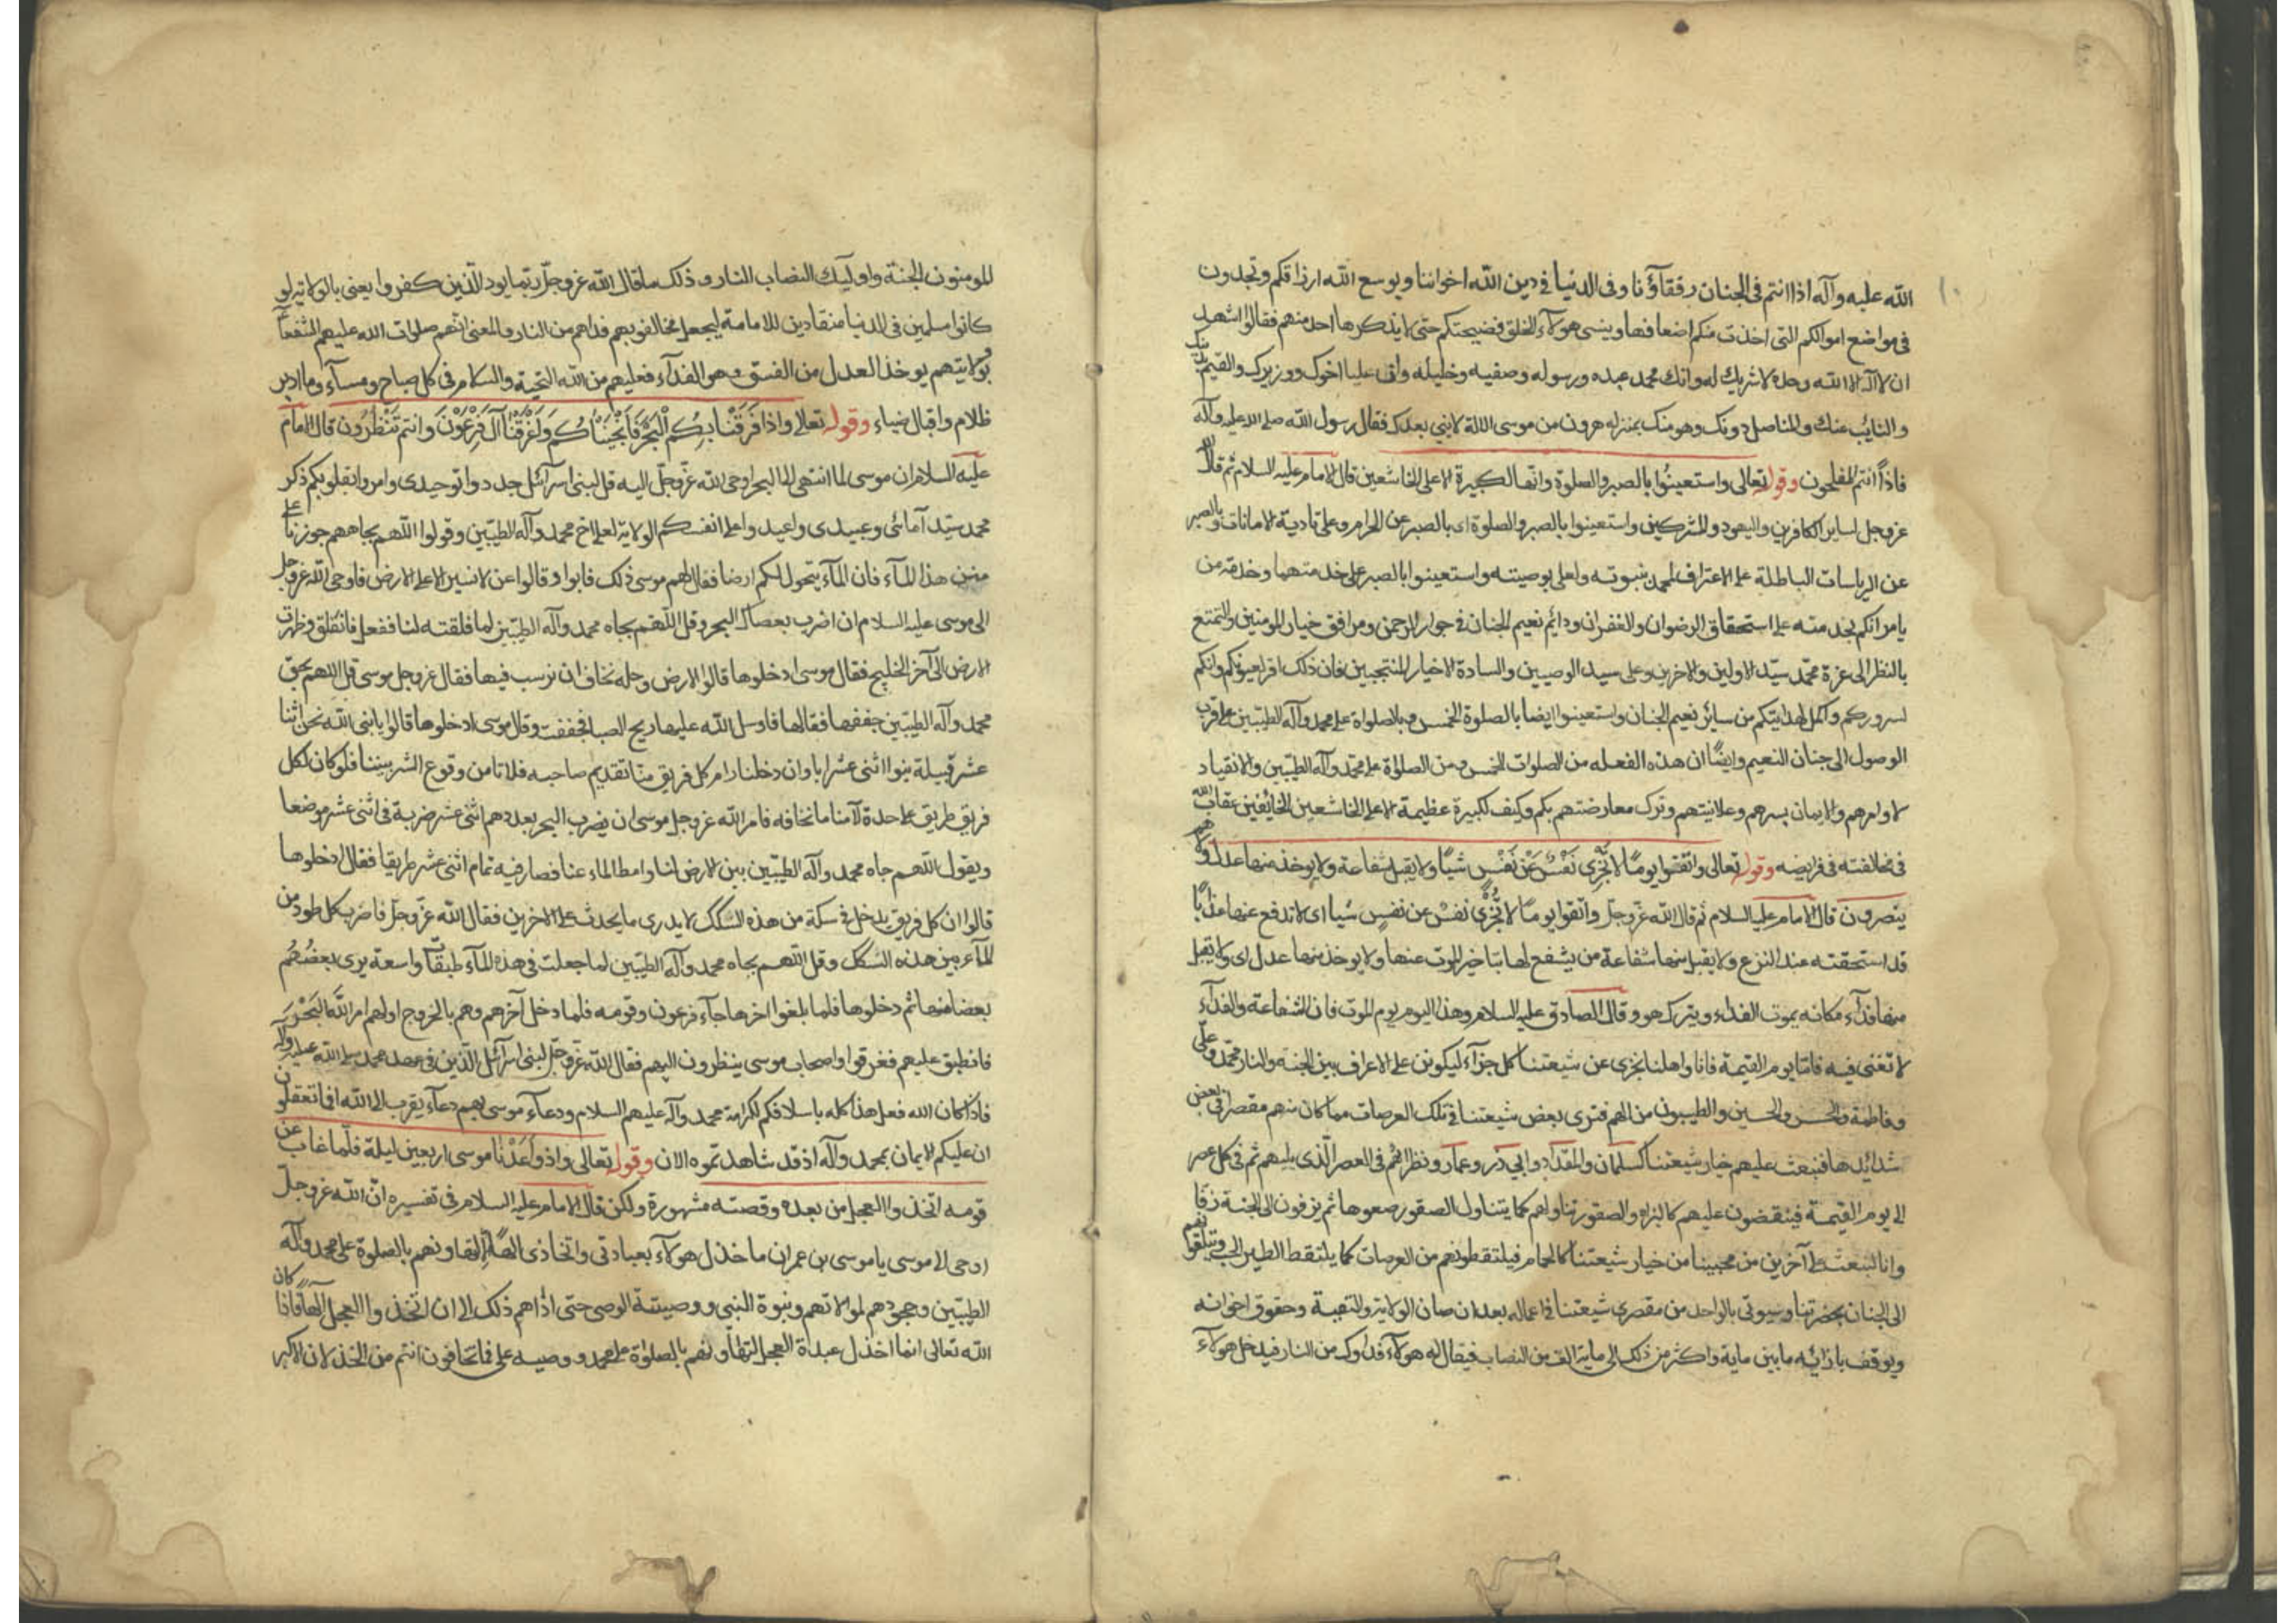 الله عليه وآله اذا انتم فى الجنان رفقآؤنا وفى الدنيا فى دين الله اخواننا ويوسع الله ارزاقكم وتجدون
فى مواضع اموالكم التى اخذت منكم اضعافها وينسى هولآء الخلق فضيحتكم حتى لا يذكرها احد منهم فقالوا اشهد
ان لا اله الا الله وحده لا شريك له وانك محمد عبده ورسوله وصفيه وخليله وان عليا اخوك ووزيرك والقيم بدينك
والنايب عنك والمناصل دونك وهو منك بمنزلة هرون من موسى الا انه لا نبى بعدك فقال رسول الله صلى الله عليه وآله
فاذاً انتم المفلحون وقوله تعالى واستعينُوا بالصبر والصلوة وانها لكبيرة الا على الخاشعين قال الامام عليه السلام ثم قال الله
عز وجل لساير الكافرين واليهود والمشركين واستعينوا بالصبر والصلوة اى بالصبر عن الحرام وعلى تادية الامانات وبالصبر
عن الرياسات الباطلة على الاعتراف لمحمد بنبوته ولعلى بوصيته واستعينوا بالصبر على خدمتهما وخدمة من
يامرانكم بخدمته على استحقاق الرضوان والغفران ودائم نعيم الجنان فى جوار الرحمن ومرافقة خيار المومنين والتمتع
بالنظر الى عزة محمّد سيّد الاولين والاخرين وعلى سيد الوصيين والسادة الاخيار المنتجبين فان ذلك اقر لعيونكم واتم
لسروركم واكمل لهدايتكم من سائر نعيم الجنان واستعينوا ايضا بالصلوة الخمس وبالصلواة على محمد وآله الطيّبين على قرب
الوصول الى جنان النعيم وايضًا ان هذه الفعله من الصلوات الخمس ومن الصلوة على محمّد وآله الطيّبين والانقياد
لاوامرهم والايمان بسرهم وعلانيتهم وترك معارضتهم بكم وكيف لكبيرة عظيمة الا على الخاشعين الخائفين عقاب الله
فى مخالفته فى فرايضه وقوله تعالى واتقوا يومًا لا تَجْزى نَفْسٌ عَنْ نَفْسٍ شيئًا ولا يقبل شفاعة ولا يوخذ منها عدل ولا هم
ينصرون قال الامام عليه السلام ثم قال الله عزّ وجلّ واتقوا يومًا لا تَجْزى نفسٌ عن نفسٍ شيئا اى لا تدفع عنها عذابًا
قد استحقته عند النزع ولا يقبل منها شفاعة من يشفع لها بتاخير الموت عنها ولا يوخذ منها عدل اى ولا يقبل
منها فدآء مكانه يموت الفداء ويترك هو وقال الصادق عليه السلام وهذا اليوم يوم الموت فان الشفاعة والفدآء
لا تغنى فيه فامّا يوم القيمة فانا واهلنا نجزى عن شيعتنا كل جزآء ليكونن على الاعراف بين الجنة والنار محمّد وعلىّ
وفاطمة والحسن والحسين والطيبون من الهم فترى بعض شيعتنا فى تلك العرصات مما كان منهم مقصرا فى بعض
شدائدها فنبعث عليهم خيار شيعتنا كسلمان والمقداد وابي ذر وعمار ونظرائهم فى العصر الذى يليهم ثم فى كل عصر
الى يوم القيمة فينقضون عليهم كالبزاه والصقور تناولهم كما يتناول الصقور صعوها ثم يزفون الى الجنة زفا
وانا لنبعث على آخرين من محبينا من خيار شيعتنا كالحمام فيلتقطونهم من العرصات كما يلتقط الطير الحب وينقلونهم
الى الجنان بحضرتنا وسيوتى بالواحد من مقصرى شيعتنا فى اعماله بعد ان صان الولاية والتقية وحقوق اخوانه
ويوقف بازائه ما بين ماية واكثر من ذلك الى ماية الف من النصاب فيقال له هولآء فداوك من النار فيدخل هولآء
المومنون الجنة واوليك النصاب النار وذلك ما قال الله عز وجلّ ربّما يود الّذين كفروا يعنى بالولاية لو
كانوا مسلمين فى الدنيا منقادين للامامة ليجعل مخالفوبهم فداهم من النار والمعنى انهم صلوات الله عليهم الشفعآء
وبولايتهم يوخذ العدل من الفسق وهو الفدآء فعليهم من الله التحية والسلام فى كل صباح ومسآء وما ادبر
ظلام واقبال ضياء وقوله تعالى واذا فَرَقْنا بِكُم الْبَحْرَ فَاَنْجَيْناكُم وَاَغْرَقْنا آلَ فِرْعَوْنَ وَانتم تَنْظُرُون قال الامام
عليه السلام ان موسى لما انتهى الى البحر اوحى الله عزّ وجلّ اليه قل لبنى اسرآئل جددوا توحيدى وامروا بقلوبكم ذكر
محمد سيّد آمائى وعبيدى واعيدوا على انفسكم الولاية لعلى اخ محمد وآله الطيّبين وقولوا اللهم بجاههم جوزنا على
متن هذا المآء فان المآء يتحول لكم ارضا فقال لهم موسى ذلك فابوا وقالوا نحن لا نسير الا على الارض فاوحى الله عز وجل
الى موسى عليه السلام ان اضرب بعصاك البحر وقل اللهم بجاه محمد وآله الطيّبين لما فلقته لنا ففعل فانفلق وظهرت
الارض الى آخر الخليج فقال موسى ادخلوها قالوا الارض وحله نخاف ان نرسب فيها فقال عز وجل موسى قل اللهم بحق
محمد وآله الطيّبين جففها فقالها فارسل الله عليها ريح الصبا فجففت وقال موسى ادخلوها قالوا يا نبى الله نحن اثنا
عشر قبيلة بنوا اثنى عشر ابا وان دخلنا رام كل فريق منّا تقديم صاحبه فلا نامن وقوع الشر بيننا فلو كان لكل
فريق طريق على حدة لآمنا ما نخافه فامر الله عز وجل موسى ان يضرب البحر بعددهم اثنى عشر ضربة فى اثنى عشر موضعا
ويقول اللهم جاه محمد وآله الطيّبين بين الارض لنا وامط الماء عنا فصار فيه تمام اثنى عشر طريقا فقال ادخلوها
قالوا ان كل فريق يدخل فى سكة من هذه السكك لا يدرى ما يحدث على الاخرين فقال الله عزّ وجلّ فاضرب كل طود من
المآء بين هذه السكك وقل اللهم بجاه محمد وآله الطيّبين لما جعلت فى هذه المآء طبقًا واسعة يرى بعضُهُم
بعضا منها ثم دخلوها فلما بلغوا اخرها جآء فرعون وقومه فلما دخل آخرهم وهم بالخروج اولهم امر الله البَحْرَ
فانطبق عليهم فغرقوا واصحاب موسى ينظرون اليهم فقال الله عزّ وجلّ لبنى اسرآئل الّذين فى عهد محمد صلى الله عليه وآله
فاذا كان الله فعل هذا كله باسلافكم لكرامة محمد وآله عليهم السلام ودعآء موسى بهم دعاء يقرب الى الله افلا تعقلون
ان عليكم الايمان بمحمد وآله اذ قد شاهدتموه الان وقوله تعالى واذ واعَدْنا موسى اربعين ليلة فلمّا غاب عن
قومه اتخذوا العجل من بعده وقصته مشهورة ولكن قال الامام عليه السلام فى تفسيره انّ الله عز وجلّ
اوحى الى موسى يا موسى بن عمران ما خذل هولآء بعبادتى واتخاذى الهًا الا لتهاونهم بالصلوة على محمد وآله
الطيّبين وجحودهم لموالاتهم وبنوة النبى ووصيتة الوصى حتى اذاهم ذلك الى ان اتخذوا العجل الهًا فاذا كان
الله تعالى انما اخذل عبدة العجل لتهاونهم بالصلوة على محمد ووصيه على فما تخافون انتم من الخذلان الاكبر